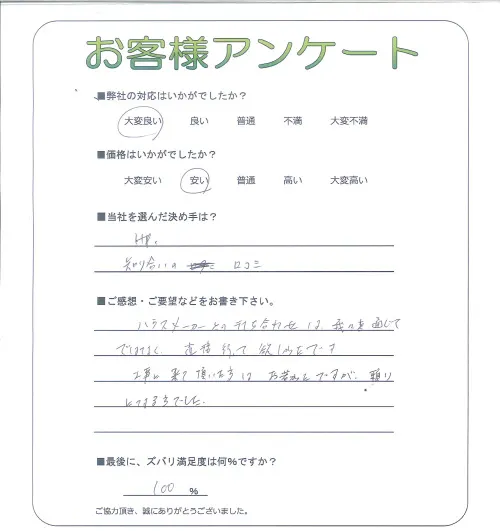 お客様アンケート
■弊社の対応はいかがでしたか？
大変良い 良い 普通 不満 大変不満
■価格はいかがでしたか？
大変安い 安い 普通 高い 大変高い
■当社を選んだ決め手は？
HP。
知り合いの 口コミ
■ご感想・ご要望などをお書き下さい。
ハウスメーカーとの打ち合わせは、我々を通じて
ではなく、直接行って欲しかったです
工事に来て頂いた方は お若かったですが、頼り
になる方でした。
■最後に、ズバリ満足度は何％ですか？
100 %
ご協力頂き、誠にありがとうございました。